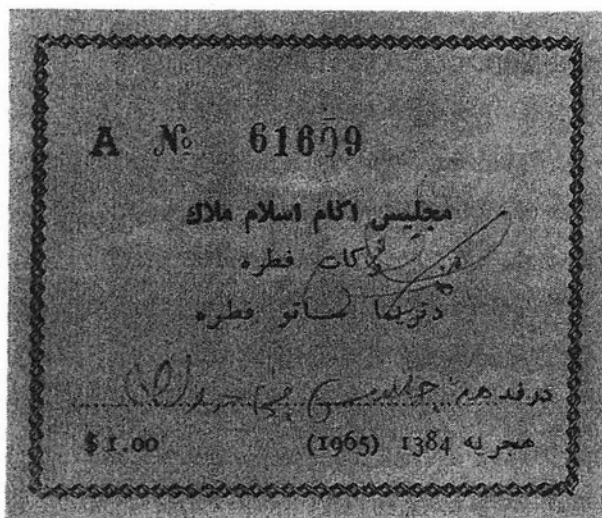 A № 61609
مجليس اݢام اسلام ملاك
زكات فطره
دتريما ساتو فطره
درفد
$1.00 هجريه 1384 (1965)